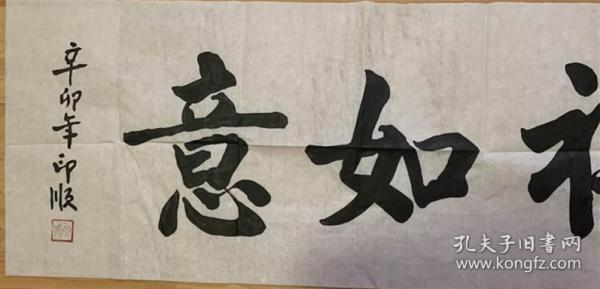 如意
辛卯年印顺
孔夫子旧书网
www.kongfz.com